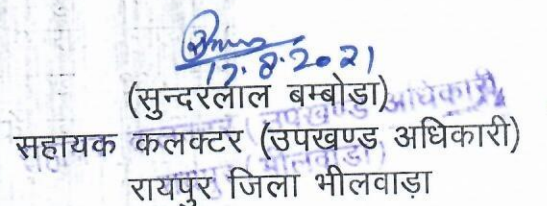 17.8.2021
(सुन्दरलाल बम्बोडा)
सहायक कलक्टर (उपखण्ड अधिकारी)
रायपुर जिला भीलवाड़ा